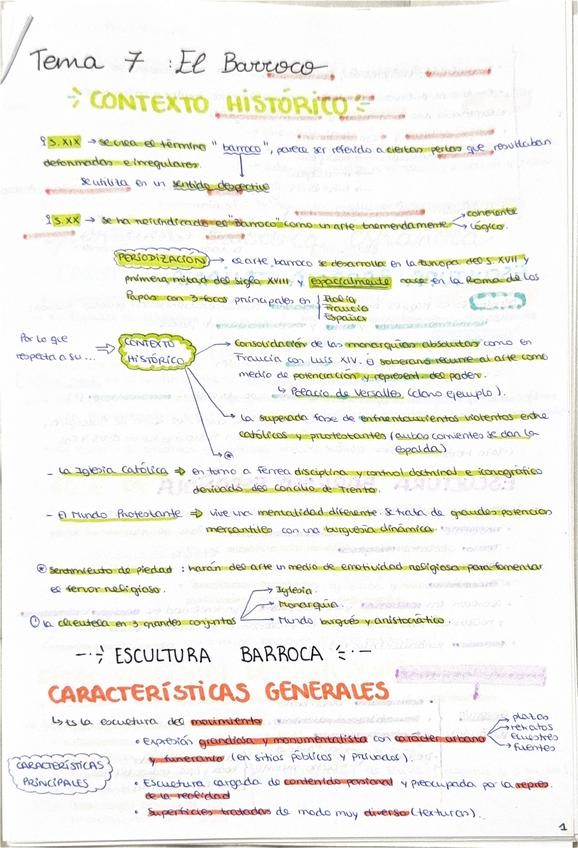 Tema 7 : El Barroco
CONTEXTO HISTÓRICO
S. XIX → se crea el término "barroco", parece ser referido a ciertas perlas que resultaban
deformadas e irregulares.
se utiliza en un sentido despectivo
S. XX → se ha reivindicado el "Barroco" como un arte tremendamente
coherente
lógico.
PERIODIZACIÓN → el arte barroco se desarrolla en la Europa del S. XVII y
primera mitad del siglo XVIII, y especialmente nace en la Roma de los
Papas con 3 focos principales en
Italia
Francia
España
Por lo que
respecta a su...
CONTEXTO
HISTÓRICO
Consolidación de las monarquías absolutas como en
Francia con Luis XIV. El soberano recurre al arte como
medio de potenciación y represent. del poder.
↳ Palacio de Versalles (claro ejemplo).
la superada fase de enfrentamientos violentos entre
católicos y protestantes (ambas corrientes se dan la
espalda)
- La Iglesia Católica ⇒ en torno a Férrea disciplina y control doctrinal e iconográfico
derivado del concilio de Trento.
- El Mundo Protestante ⇒ vive una mentalidad diferente. Se trata de grandes potencias
mercantiles con una burguesía dinámica.
Sentimiento de piedad : harán del arte un medio de emotividad religiosa para fomentar
el fervor religioso.
la clientela en 3 grandes conjuntos
Iglesia.
Monarquía
Mundo burgués y aristocrático.
ESCULTURA BARROCA
CARACTERÍSTICAS GENERALES
↳ es la escultura del movimiento
CARACTERÍSTICAS
PRINCIPALES
• Expresión grandiosa y monumentalista con carácter urbano
plazas
retratos
ecuestres
fuentes
y funerario (en sitios públicos y privados).
• Escultura cargada de contenido personal y preocupada por la repres.
de la realidad
• Superficies tratadas de modo muy diverso (texturas).
1